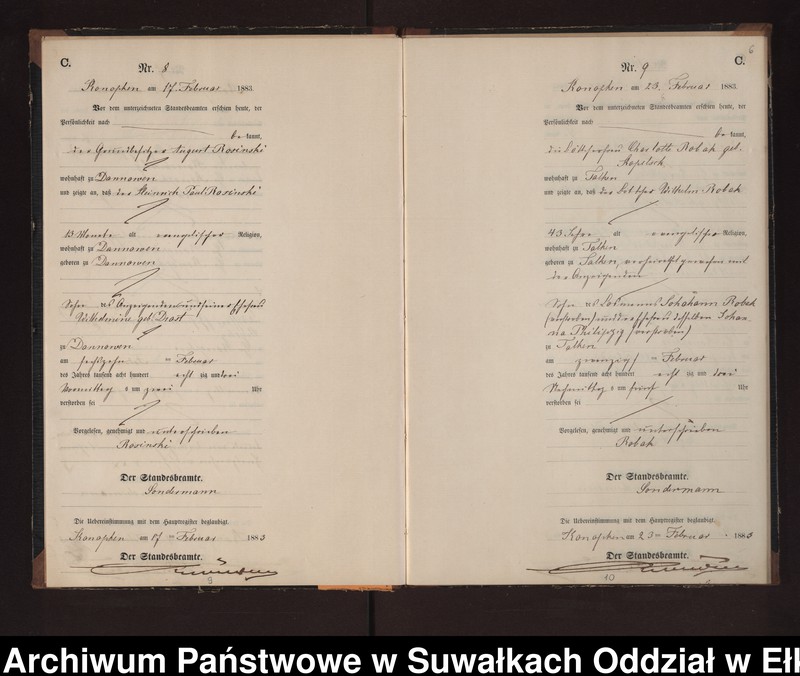 C.
Nr. 8
Konopken am 17. Februar 1883.
Vor dem unterzeichneten Standesbeamten erschien heute, der
Persönlichkeit nach
be kannt,
der Grundbesitzer August Rosinski
wohnhaft zu Dannowen
und zeigte an, daß der Heinrich Paul Rosinski
13 Monate alt evangelischer Religion,
wohnhaft zu Dannowen
geboren zu Dannowen
Sohn des Anzeigenden und seiner Ehefrau
Wilhelmine geb.
zu Dannowen
am sechszehn ten Februar
des Jahres tausend acht hundert acht zig und drei
Vormittag s um zwei Uhr
verstorben sei
Vorgelesen, genehmigt und unterschrieben
Rosinski
Der Standesbeamte.
Sondermann
Die Uebereinstimmung mit dem Hauptregister beglaubigt.
Konopken am 17 ten Februar 1883
Der Standesbeamte.
9
6
C.
Nr. 9
Konopken am 23. Februar 1883.
Vor dem unterzeichneten Standesbeamten erschien heute, der
Persönlichkeit nach
be kannt,
die Charlotte Robak geb.
wohnhaft zu Talken
und zeigte an, daß der Wilhelm Robak
43 Jahre alt evangelischer Religion,
wohnhaft zu Talken
geboren zu Talken, verheirathet gewesen mit
der Anzeigenden
Sohn des Losmanns Johann Robak
(verstorben) und der Ehefrau desselben Johan
na (verstorben)
zu Talken
am zwanzigs ten Februar
des Jahres tausend acht hundert acht zig und drei
Nachmittag s um fünf Uhr
verstorben sei
Vorgelesen, genehmigt und unterschrieben
Robak
Der Standesbeamte.
Sondermann
Die Uebereinstimmung mit dem Hauptregister beglaubigt.
Konopken am 23 ten Februar 1883
Der Standesbeamte.
10
Archiwum Państwowe w Suwałkach Oddział w Ełk